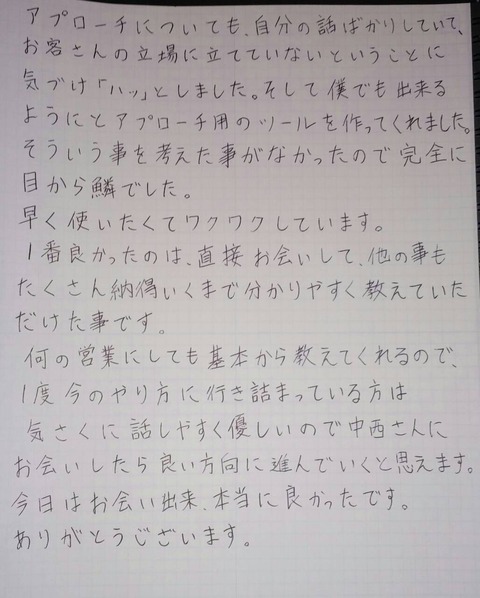 アプローチについても、自分の話ばかりしていて、
お客さんの立場に立てていないということに
気づけ「ハッ」としました。そして僕でも出来る
ようにとアプローチ用のツールを作ってくれました。
そういう事を考えた事がなかったので完全に
目から鱗でした。
早く使いたくてワクワクしています。
1番良かったのは、直接お会いして、他の事も
たくさん納得いくまで分かりやすく教えていた
だけた事です。
何の営業にしても基本から教えてくれるので、
1度今のやり方に行き詰まっている方は
気さくに話しやすく優しいので中西さんに
お会いしたら良い方向に進んでいくと思えます。
今日はお会い出来、本当に良かったです。
ありがとうございます。